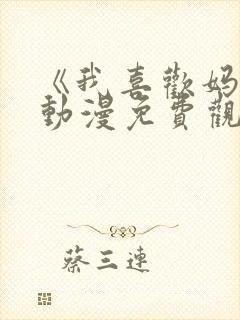 《我喜歡妈
動漫免費觀
蔡三連